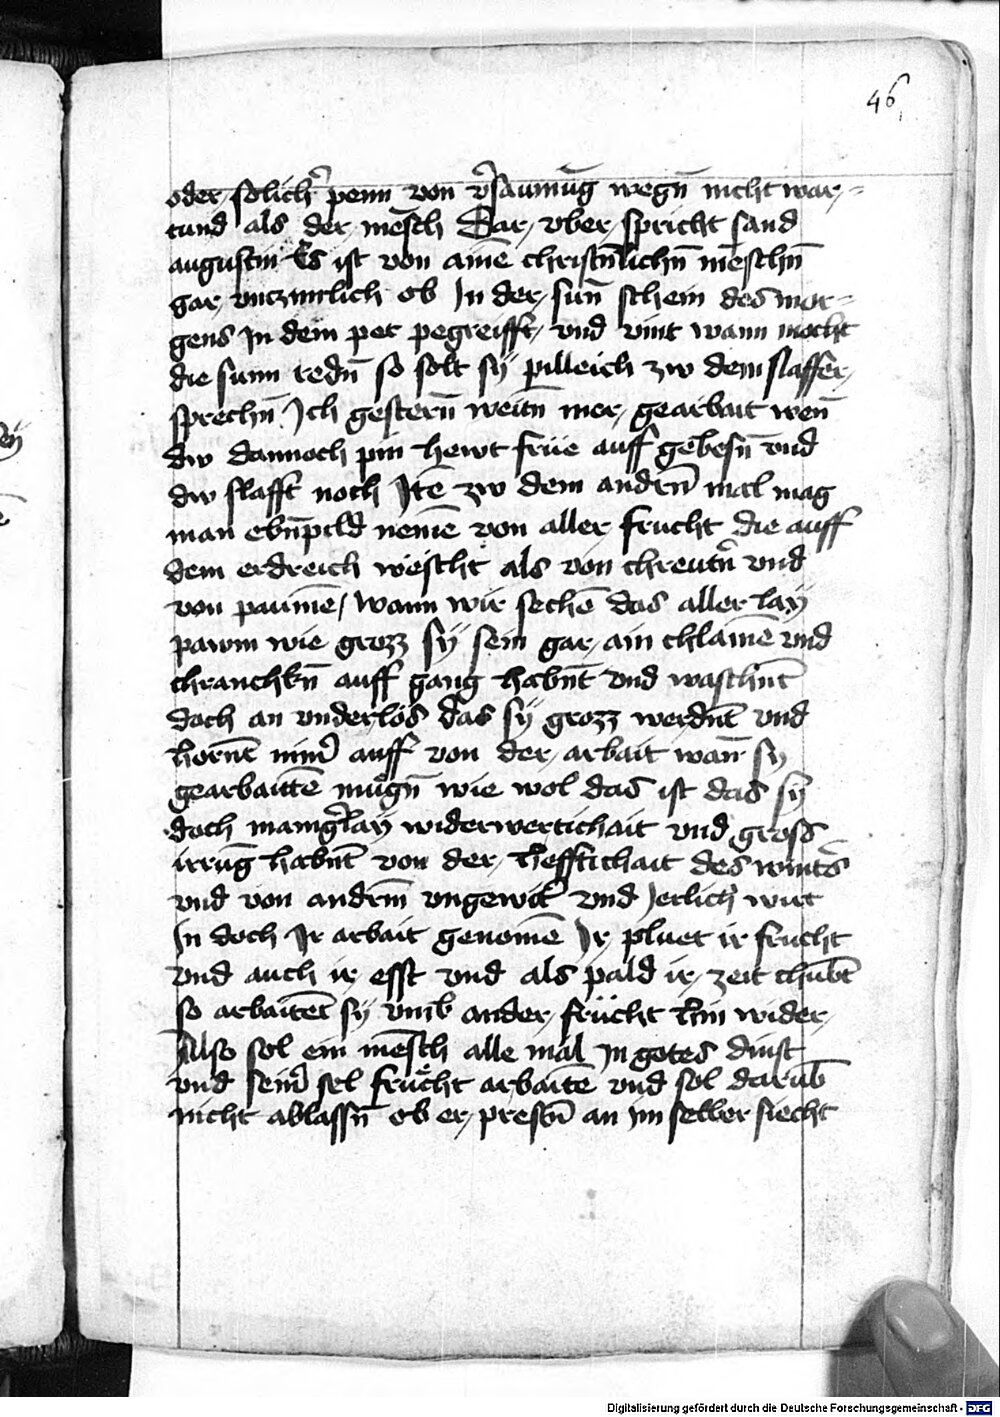 46
oder solicher penn von v̾saumūg wegn̄ nicht war-
tund als der mēsch Dar vber spricht sand
augustin Es ist von aīnē christn̄lichn̄ mēschn̄
gar vnczimlich ob In der sun̄ schein des mor-
gens In dem pet pegreifft vnd vint wann mocht
die sunn redn̄ so solt sÿ pilleich zw dem slaffer
sprechn̄ Ich gestern̄ weitn̄ mer gearbait wen̄
dw dannoch pin hewt früe auff gebesn̄ vnd
dw slafft noch Itē zw dem andern̄ mal mag
man ebn̄pild nemē von aller frucht die auff
dem erdreich wëscht als von chreutn̾ vnd
von paumē / wann wir sechē das aller lay
pawm wie grozz sÿ sein gar ain chlainē vnd
chranchkn̄ auff gang habn̄t vnd waschn̄t
doch an vnderlos das sÿ grozz werdn̄t vnd
hörn̄t nim̾ auff von der arbait wan̄ sy
gearbaittē mugn̄ wie wol das ist das sÿ
doch manig̾lay widerwertichait vnd gross
irrūg habn̄t von der hefftichait des wint̾s
vnd von anderm̄ vngewit̾ vnd Jerlich wirt
In doch Ir arbait genomē Ir pluet ir frucht
vnd auch ir esst vnd als pald ir zeit chūbt
so arbaitēt sÿ vmb ander frücht hin wider
Also sol ein mēsch alle mal In gotes dinst
vnd sein̾ sel frucht arbaitē vnd sol darūb
nicht ablassn̄ ob er prestn̄ an im selber siecht
Digitalisierung gefördert durch die Deutsche Forschungsgemeinschaft - DFG